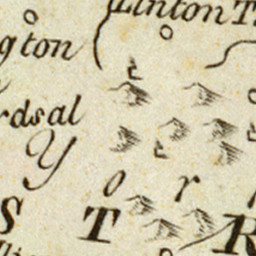 Linton T
gton
rdsal
Y o r
S T R